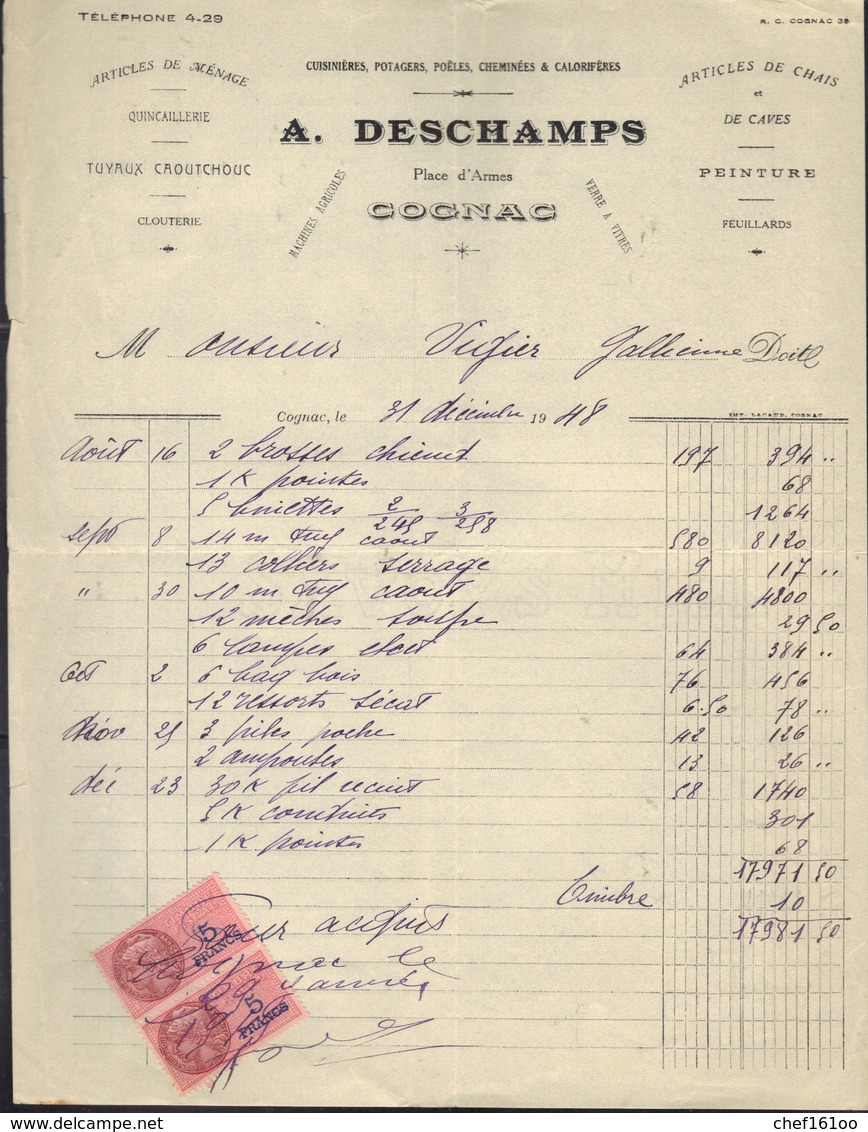 TÉLÉPHONE 4-29
R. C. COGNAC 39
ARTICLES DE MÉNAGE
QUINCAILLERIE
TUYAUX CAOUTCHOUC
CLOUTERIE
CUISINIÈRES, POTAGERS, POÊLES, CHEMINÉES & CALORIFÈRES
A. DESCHAMPS
Place d'Armes
COGNAC
MACHINES AGRICOLES
VERRE A VITRES
ARTICLES DE CHAIS
et
DE CAVES
PEINTURE
FEUILLARDS
Monsieur Vigier Doit
Cognac, le 31 décembre 1948
IMP. LACAUD, COGNAC
Août 16 2 brosses chient 197 394 "
1 K pointes 68
5 2/245 3/258 1264
Sept 8 14 m tuy caout 580 8120
13 colliers serrage 9 117 "
" 30 10 m tuy caout 480 4800
12 mèches soufre 29 50
6 lampes 64 384 "
Oct 2 6 bag bois 76 456
12 ressorts sécat 6.50 78 "
Nov 25 3 piles poche 42 126
2 ampoules 13 26 "
déc 23 30 K fil recuit 58 1740
5 K 301
1 K pointes 68
17971 50
Timbre 10
17981 50
Pour acquis
Cognac le
5
FRANCS
5
FRANCS
delcampe.net
chef16100